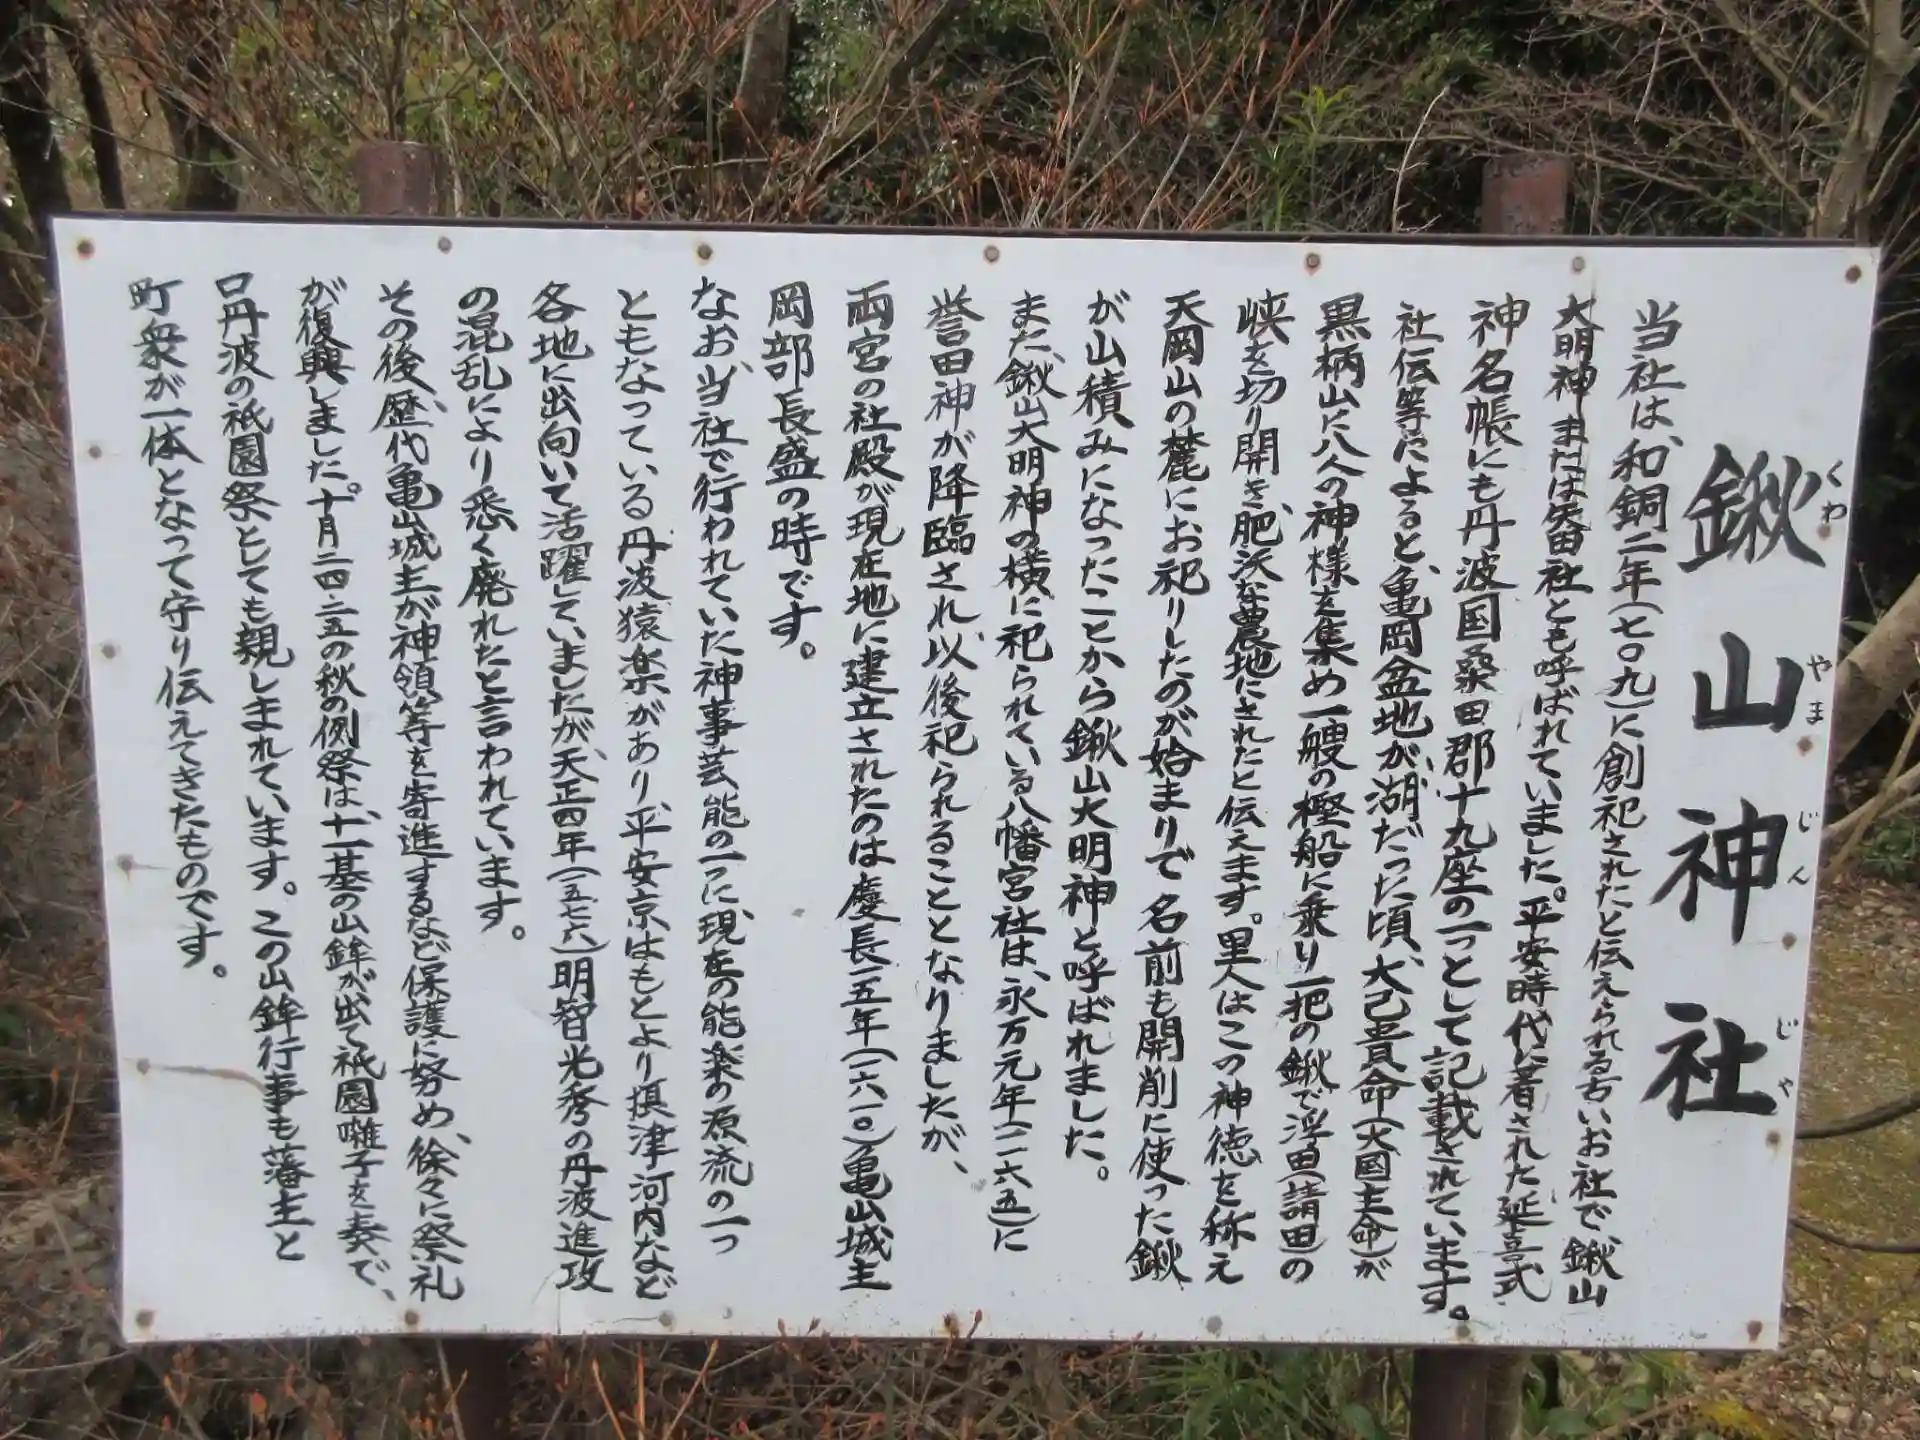 鍬山神社
くわ やま じん じゃ
当社は、和銅二年(七〇九)に創祀されたと伝えられる古いお社で、鍬山
大明神または矢田社とも呼ばれていました。平安時代に著された延喜式
神名帳にも丹波国桑田郡十九座の一つとして記載されています。
社伝等によると、亀岡盆地が、湖だった頃、大己貴命(大国主命)が
黒柄山に八人の神様を集め一艘の樫船に乗り一把の鍬で浮田(請田)の
峡を切り開き、肥沃な農地にされたと伝えます。里人はこの神徳を称え
天岡山の麓にお祀りしたのが始まりで名前も開削に使った鍬
が山積みになったことから鍬山大明神と呼ばれました。
また、鍬山大明神の横に祀られている八幡宮社は、永万元年(一一六五)に
誉田神が降臨され、以後祀られることとなりましたが、
両宮の社殿が現在地に建立されたのは慶長一五年(一六一〇)亀山城主
岡部長盛の時です。
なお、当社で行われていた神事芸能の一つに、現在の能楽の源流の一つ
ともなっている丹波猿楽があり、平安京はもとより摂津河内など
各地に出向いて活躍していましたが、天正四年(一五七六)明智光秀の丹波進攻
の混乱により悉く廃れたと言われています。
その後、歴代亀山城主が神領等を寄進するなど保護に努め、徐々に祭礼
が復興しました。十月二四・二五の秋の例祭は、十一基の山鉾が出て祇園囃子を奏で、
口丹波の祇園祭としても親しまれています。この山鉾行事も藩主と
町衆が一体となって守り伝えてきたものです。